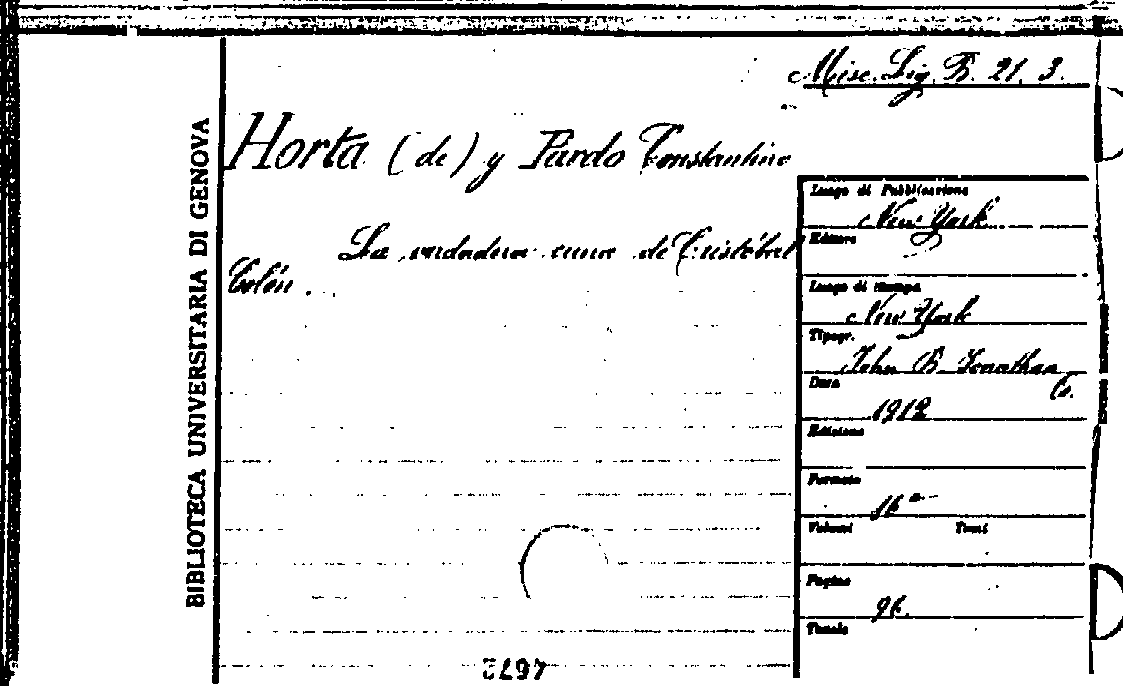 Misc. Lig. B. 21. 3.
BIBLIOTECA UNIVERSITARIA DI GENOVA
Horta (de) y Pardo Constantino
La verdadera cuna de Cristóbal
Colón.
Luogo di Pubblicazione
New York
Editore
Luogo di stampa
New York
Tipogr.
John B. Jonathan
Co.
Data
1912
Edizione
Formato
16°
Volumi Tomi
Pagine
96.
Tavole